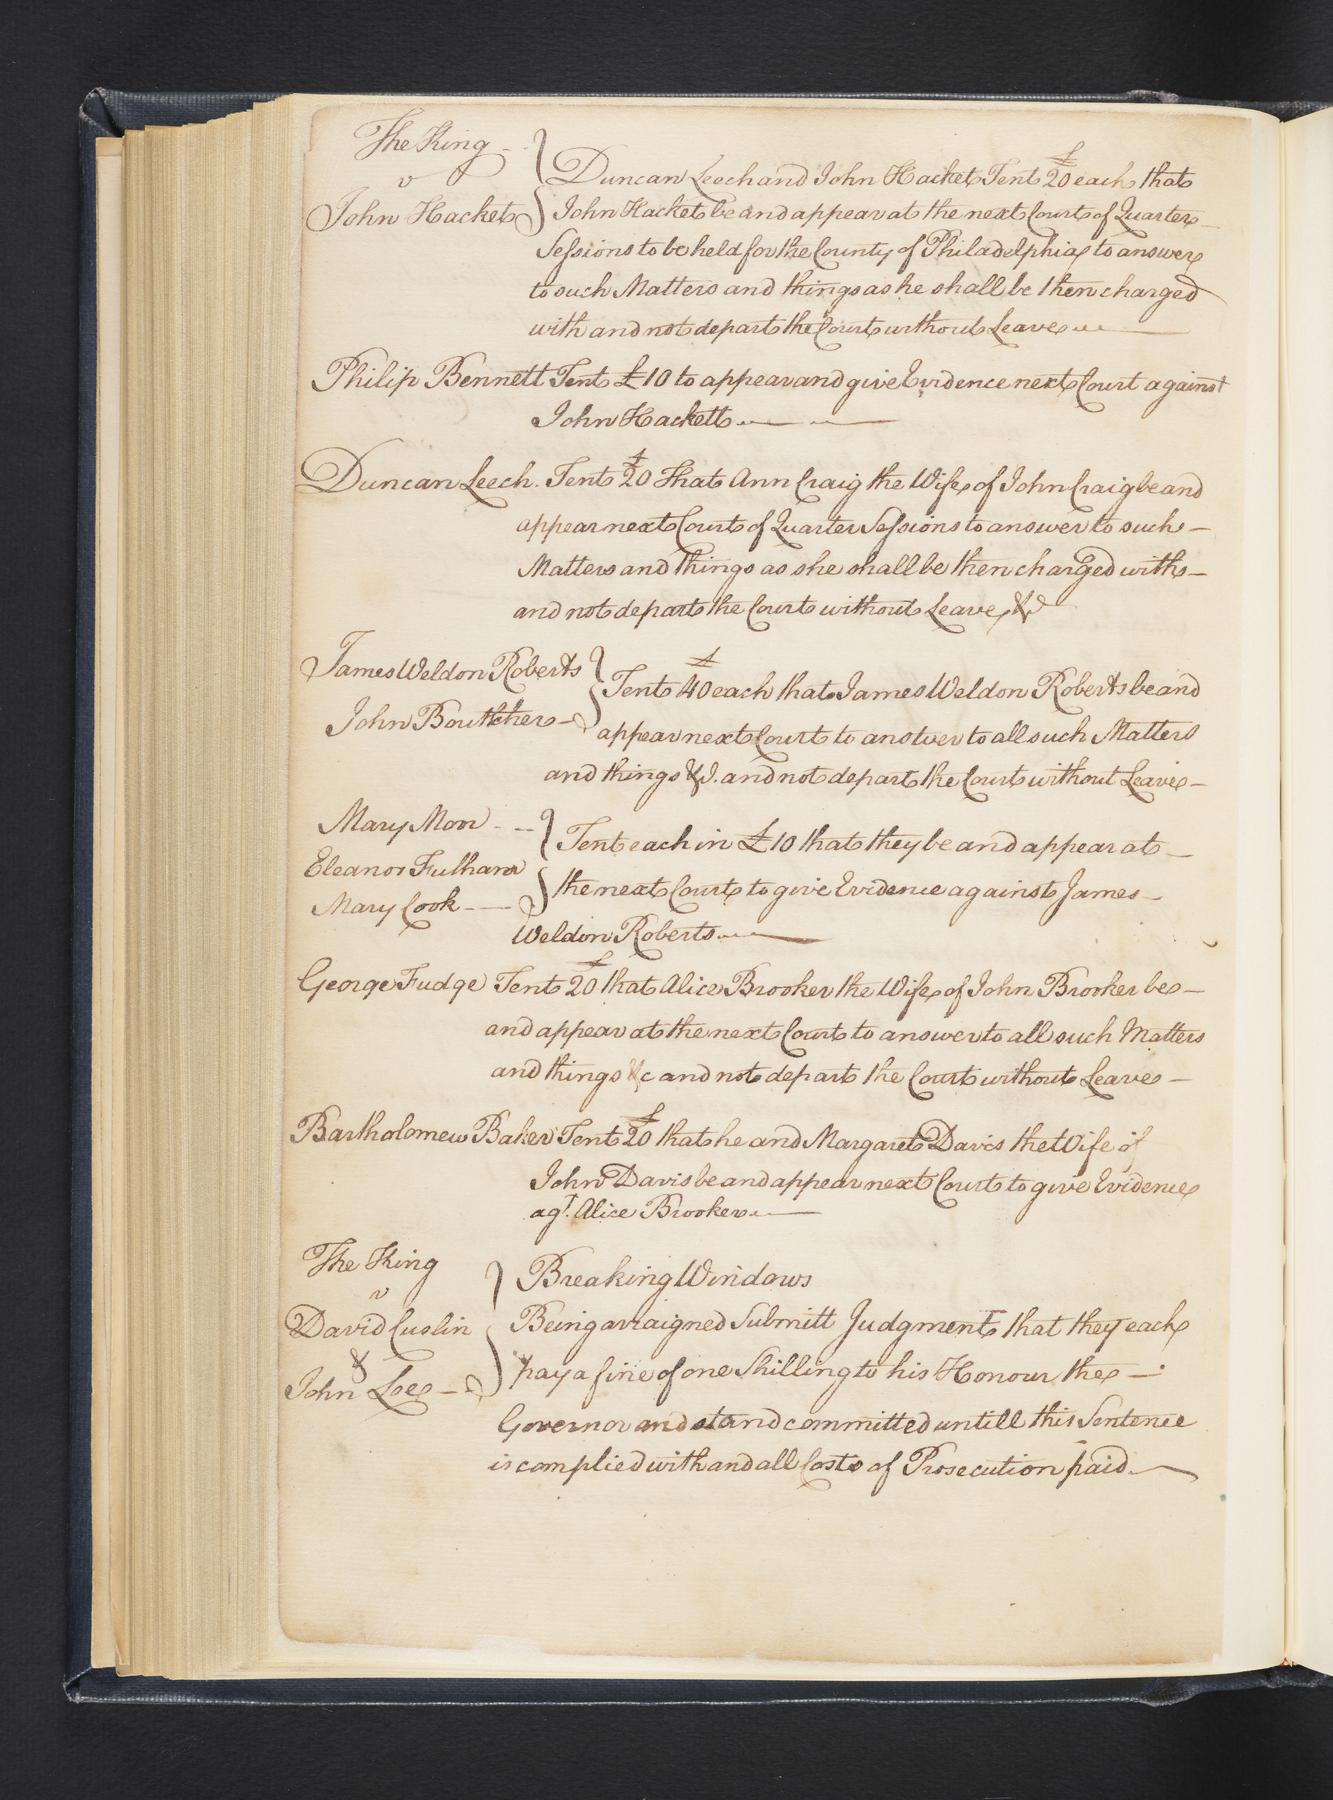 The King
v
John Hacket
Duncan Leech and John Hacket Tent £20 each that
John Hacket be and appear at the next Court of Quarter
Sessions to be held for the County of Philadelphia to answer
to such Matters and things as he shall be then charged
with and not depart the Court without Leave
Philip Bennett Tent £10 to appear and give Evidence next Court against
John Hackett
Duncan Leech. Tent £20 That Ann Craig the Wife of John Craig be and
appear next Court of Quarter Sessions to answer to such
Matters and things as she shall be then charged with
and not depart the Court without Leave &c
James Weldon Roberts
John Boutcher
Tent £40 each that James Weldon Roberts be and
appear next Court to answer to all such Matters
and things &c. and not depart the Court without Leave
Mary Moor
Eleanor Fulham
Mary Cook
Tent each in £10 that they be and appear at
the next Court to give Evidence against James
Weldon Roberts
George Fudge Tent £20 that Alice Brooker the Wife of John Brooker be
and appear at the next Court to answer to all such Matters
and things &c and not depart the Court without Leave
Bartholomew Baker Tent £20 that he and Margaret Davis the Wife of
John Davis be and appear next Court to give Evidence
agt. Alice Brooker
The King
v
David Cuslin
&
John Lee
Breaking Windows
Being arraigned Submitt Judgment that they each
pay a fine of one Shilling to his Honour the
Governor and stand committed untill this Sentence
is complied with and all Costs of Prosecution paid